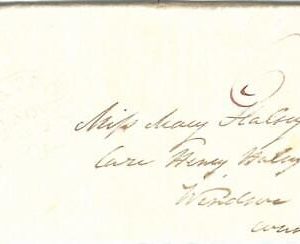 Miss Mary Halsey
Care Henry Halsey
Windsor